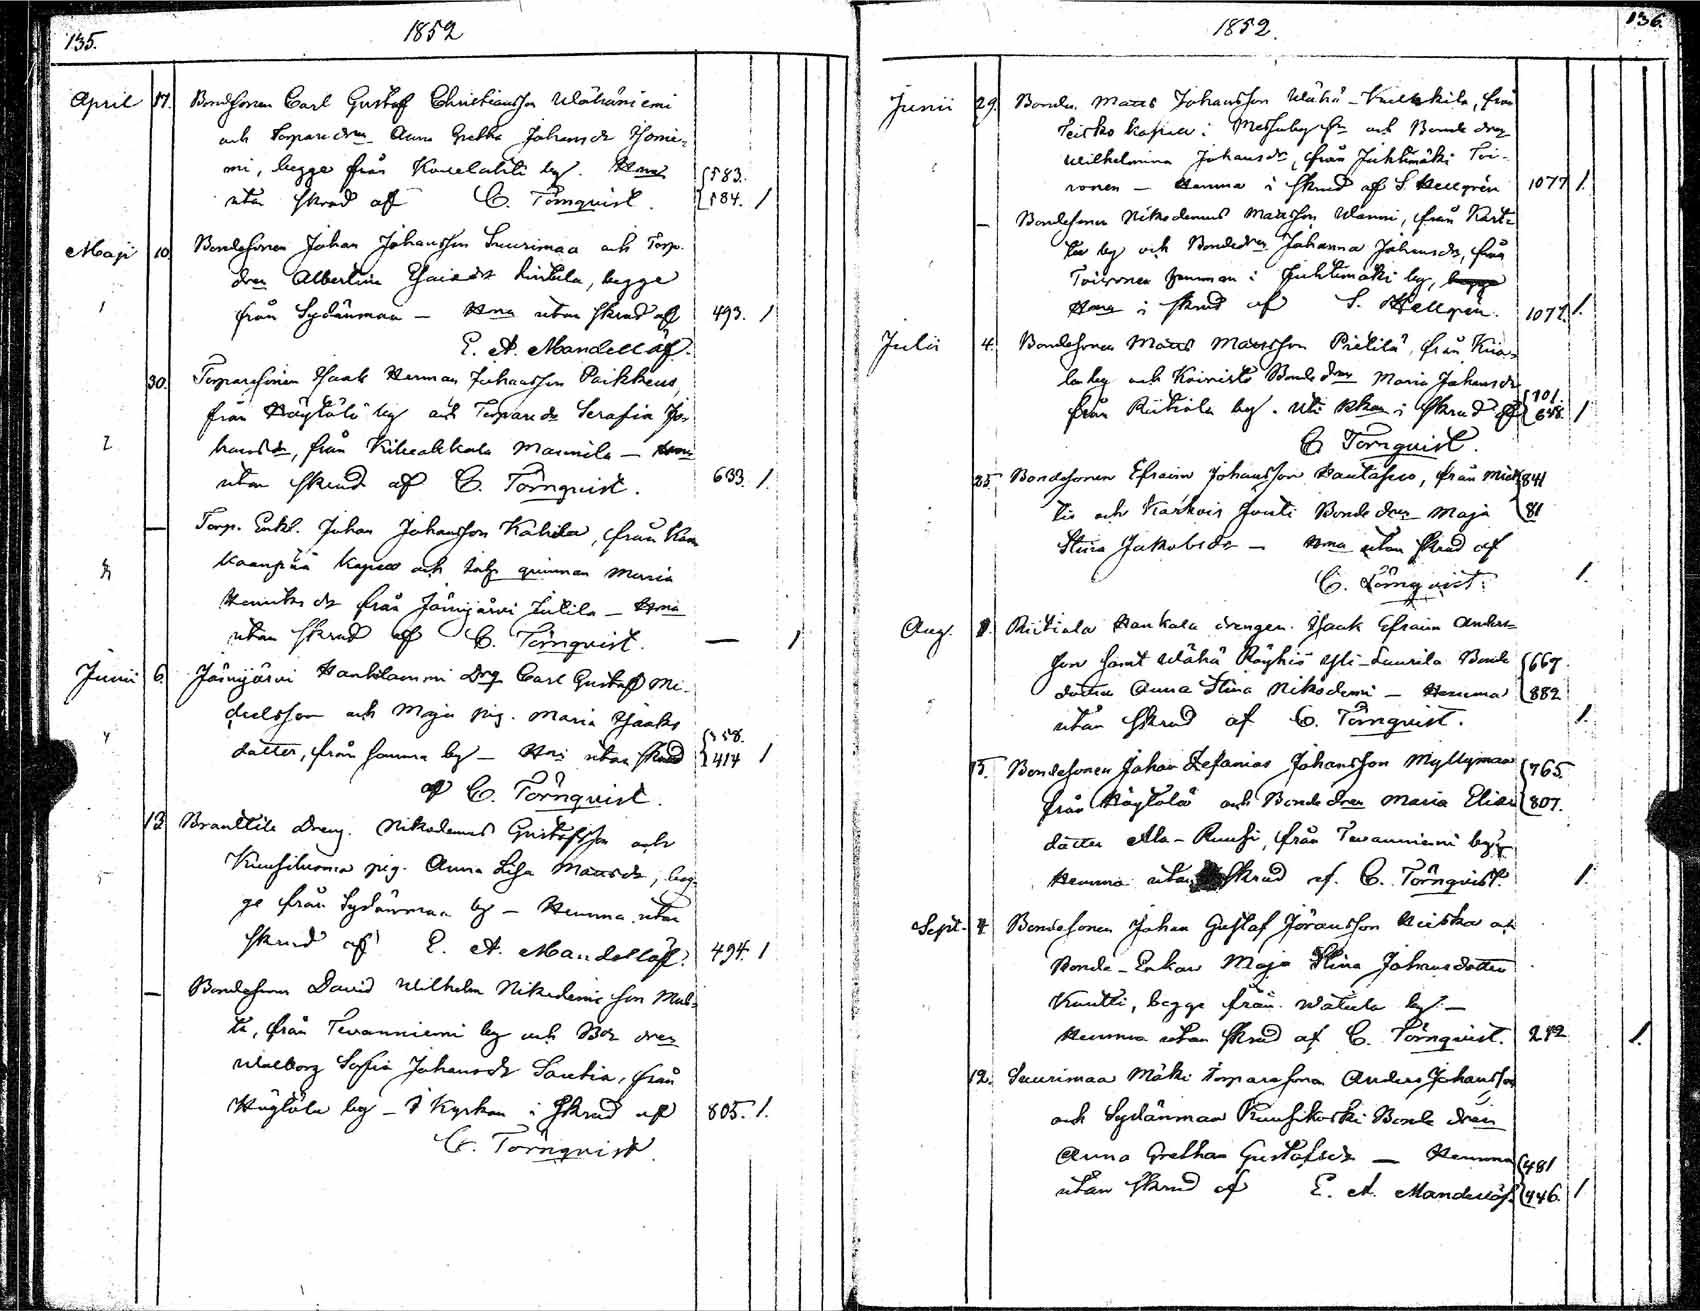 135. 1852
April 17. Bondesonen Carl Gustaf Christiansson Wähäniemi
och Torparedren Anna Gretha Johansdr
begge från by. Hma
583.
utan skrud af C. Törnqvist. 584. 1
Maji 10 Bondesonen Johan Johansson Suurimaa och Torp.
dren Albertina Isaksdr begge
1 från Sydänmaa — Hma utan skrud af 493. 1
E. A. Mandellöf.
30. Torparesonen Isaak Herman Johansson Paikkeus
från Höytölä by och Torparedr Serafia Jo-
2 hansdr, från Kihcakkala Mannila — Hma
utan skrud af C. Törnqvist. 633. 1.
— Torp. Enkl. Johan Johansson från Kan
3 kaanpää Kapell och qvinnan Maria
Henriksdr från Jämijärvi — Hma
utan skrud af C. Törnqvist. — 1
Junii 6. Jämijärvi Hankilammi Drg Carl Gustaf Mi-
chelsson och pig. Maria Isaaks
358.
4 dotter, från samma by — utan skrud 414 1
af C. Törnqvist.
13 Branttila Dreng. Nikodemus Gustafsson och
5 Kuusiluoma pig. Anna Lisa Mattsdr, beg-
ge från Sydänmaa by — Hemma utan
skrud af E. A. Mandellöf. 494. 1
— Bondesonen David Wilhelm Nikodemisson
från Tevanniemi by och dren
Walborg Sofia Johansdr från
Höytölä by — I Kyrkan i skrud af 805. 1.
C. Törnqvist.
1852. 136.
Junii 29. Bonden Matts Johansson Wähä-Kulkkila, från
Teisko kapell i Messuby sn och Bonde dren
Wilhelmina Johansdr, från Juhtimäki Toi-
vonen — Hemma i skrud af S. Hellgrén 1077 1.
— Bondesonen Nikodemus Mattsson Wanni, från
by och Bondedren Johanna Johansdr, från
Toivonen hemman i Juhtimäki by, begge
Hma i skrud af S. Hellgrén. 1077. 1.
Julii 4. Bondesonen Matts Mattsson Pietilä, från
by och Koivisto Bondedren Maria Johansdr
701.
från Riitiala by. Uti i skrud af 648. 1
C. Törnqvist.
25. Bondesonen Efraim Johansson Hautaheo, från 841
tis och Karkois Jouti Bondedren Maja 81
Stina Jakobsdr — Hma utan skrud af
C. Törnqvist. 1.
Aug. 1. Riitiala Hankala drengen Isaak Efraim Anders-
son samt Wähä Röyhiö Yli-Laurila Bonde 667.
dotter Anna Stina Nikodemi — Hemma 882
utan skrud af C. Törnqvist. 1.
15. Bondesonen Johan Zefanias Johansson Myllymaa 765.
från Höytölä och Bondedren Maria Elias 807.
dotter Ala-Ruuhi, från Tevanniemi by
Hemma utan skrud af C. Törnqvist. 1.
Sept. 4 Bondesonen Johan Gustaf Jöransson Heiska och
Bonde-Enkan Maja Stina Johansdotter
Knutti, begge från Watula by. —
Hemma utan skrud af C. Törnqvist. 242 1.
12. Suurimaa Mäki Torparesonen Anders Johansson
och Sydänmaa Kuusikoski Bonde dren
Anna Grethan Gustafsdr — Hemma 481
utan skrud af E. A. Mandellöf. 446. 1